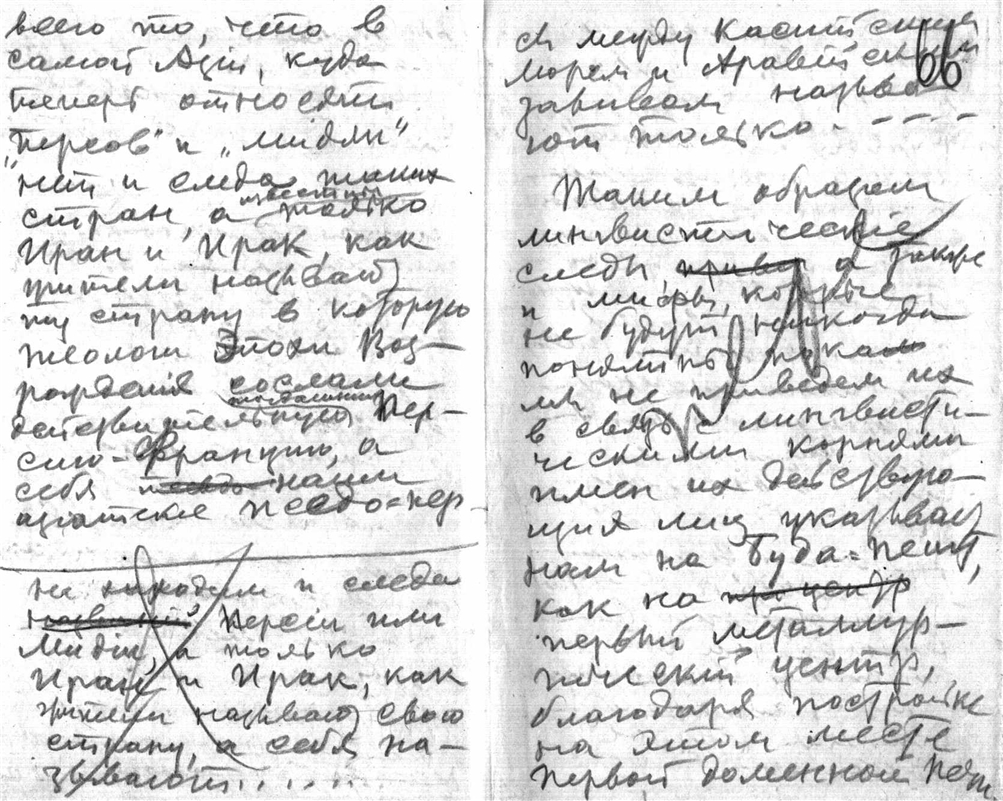 всего то, что в
самой Азіи, куда
теперь относятъ
"Персов" и "мидян"
нет и следа таких
известны
стран, а только
Иран и Ирак, как
жители называют
ту страну в которую
теологи Эпохи Воз-
рожденія сослали
тогдашнюю
действительную Пер-
сию-Францию, а
себя наши
азіатские псевдо-пер-
не находим и следа
названий Персіи или
Мидіи, а только
Иран и Ирак, как
жители называют свою
страну, а себя на-
зывают . . . .
66
ст между Каспійским
морем и Аравійским
заливом называ
ют только - - - -
Таким образом
лингвистическіе
следы а также
и мифы, которые
не будут никогда
понятны пока
мы не приведем их
в связь с лингвисти-
ческими корнями
имен их действую-
щих лиц указывают
нам на Буда-Пешт,
как на при центр
первый металлур-
гический центр,
благодаря постройке
на этом месте
первой доменной печи.